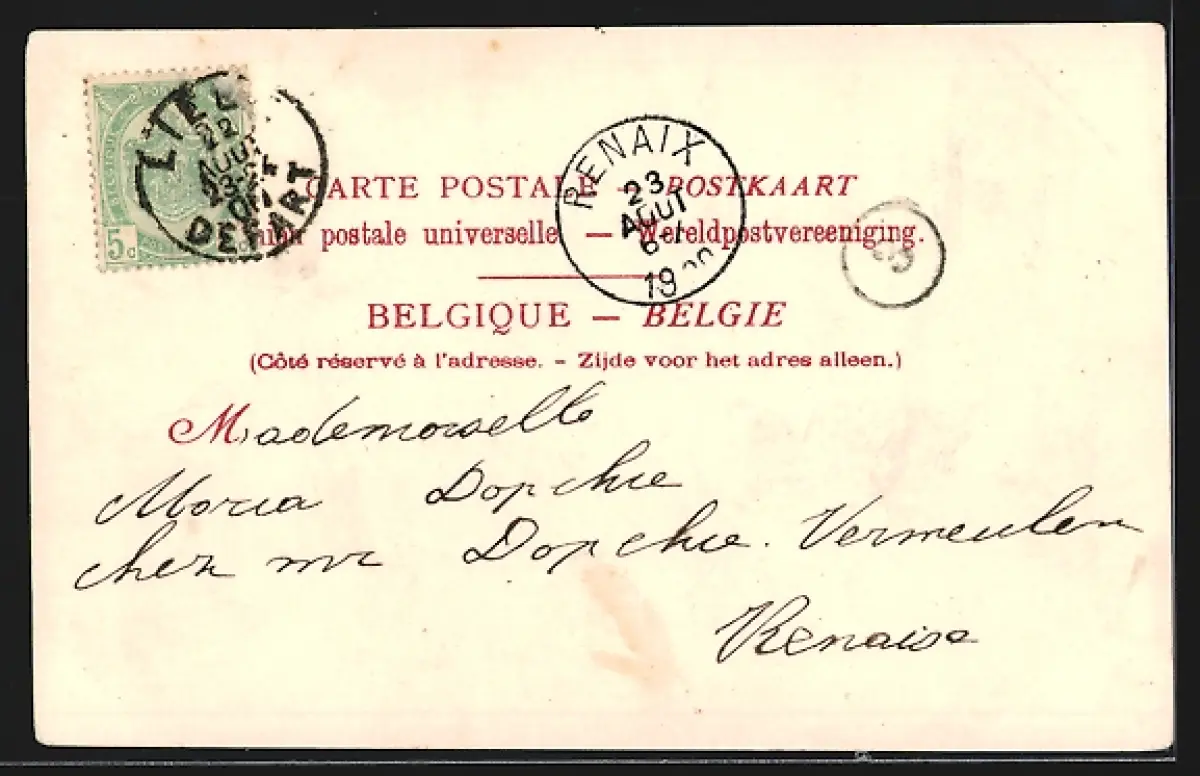 5c
22
AOUT
DEPART
RENAIX
23
AOUT
6-
19
CARTE POSTALE — POSTKAART
Union postale universelle — Wereldpostvereeniging.
BELGIQUE — BELGIE
(Côté réservé à l'adresse. - Zijde voor het adres alleen.)
Mademoiselle
Maria Dopchie
chez mr Dopchie. Vermeulen
Renaix